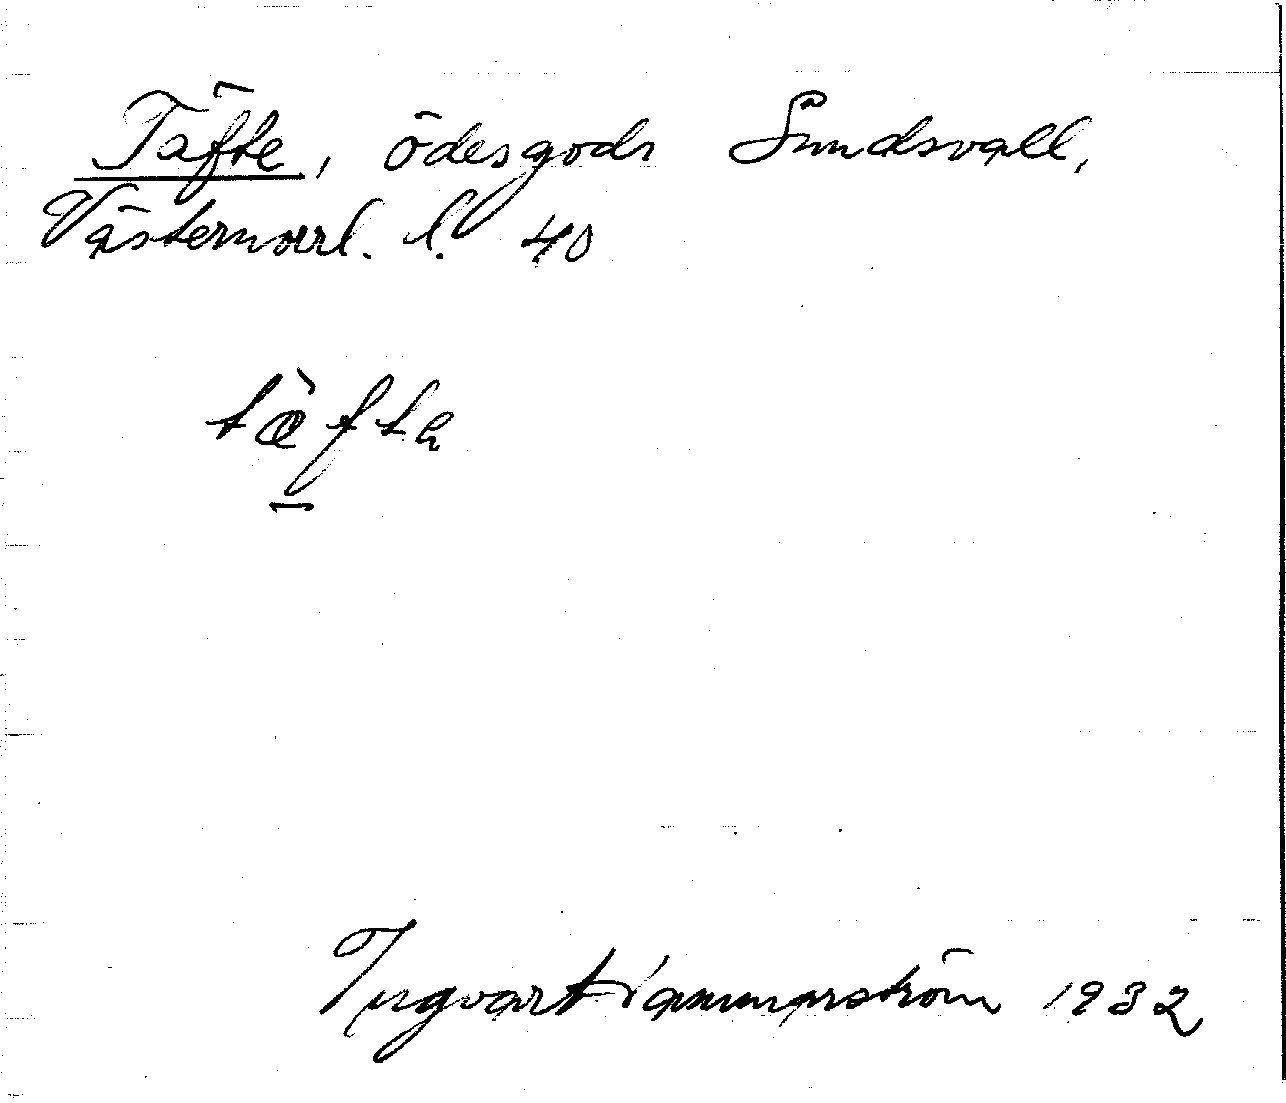 Täfte, ödesgods Sundsvall,
Västernorrl. l. 40
tæ̀fta
Ingvar Hammarström 1932